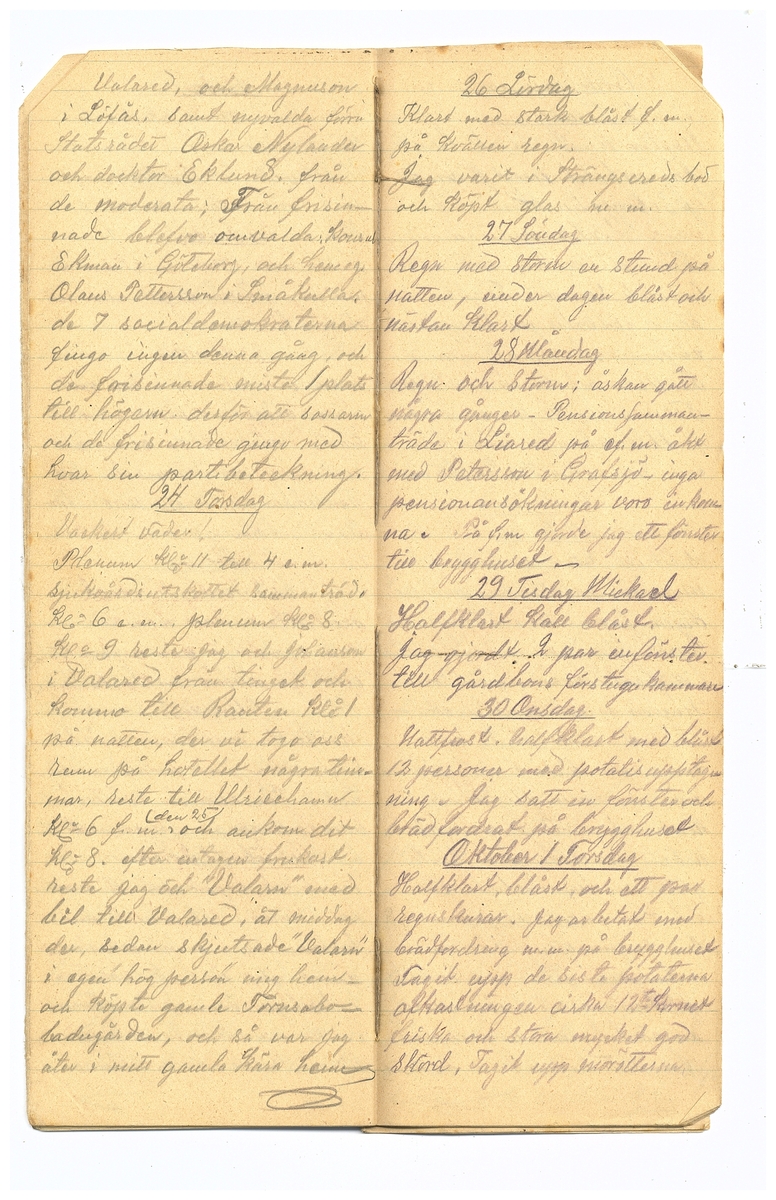 Valared, och Magnuson
i Löfås, samt nyvalda förra
Statsrådet Oskar Nylander
och docktor Eklund. från
de moderata; Från frisin-
nade blefvo omvalda: Konsul
Ekman i Göteborg, och hemeg.
Olaus Pettersson i Småkulla.
de 7 socialdemokraterna
fingo ingen denna gång, och
de frisinnade miste 1 plats
till högern derför att sossarna
och de frisinnade gingo med
hvar sin partibeteckning.
24 Torsdag
Vackert väder!
Plenum kl 11 till 4 e.m.
sjukvårdsutskottet sammanträd.
kl 6 e.m. plenum kl 8.
kl 9 reste jag och Johanson
i Valared från tinget och
kommo till Ranten kl 1
på natten, der vi togo oss
rum på hotellet några tim-
mar, reste till Ulricehamn
kl 6 f.m. (den 25) och ankom dit
kl 8. efter intagen frukost
reste jag och "Valarn" med
bil till Valared, åt middag
der, sedan skjutsade "Valarn"
i egen hög person mig hem-
och köpte gamle Törnsabo-
ladugården, och så var jag
åter i mitt gamla kära hem
26 Lördag
Klart med stark blåst f.m.
på kvällen regn.
Jag varit i Strängsereds bod
och köpt glas m.m.
27 Söndag
Regn med storm en stund på
natten, under dagen blåst och
nästan klart
28 Måndag
Regn och storm; åskan gått
några gånger - Pensionssamman-
träde i Liared på ef.m. åkt
med Petersson i Grafsjö - inga
pensionansökningar voro inkom-
na. På f.m gjorde jag ett fönster
till brygghuset
29 Tisdag Mickael
Halfklart kall blåst.
Jag gjordt 2 par infönster.
till gårdbons förstugukammare
30 Onsdag.
Nattfrost. Halfklart med blåst
12 personer med potatisupptag-
ning. Jag satt in fönster och
brädfordrat på brygghuset
Oktober 1 Torsdag
Halfklart, blåst, och ett par
regnskurar. Jag arbetat med
brädfordring m.m. på brygghuset
Tagit upp de siste potaterna
afkastningen cirka 12te kornet
friska och stora mycket god
skörd, Tagit upp morötterna